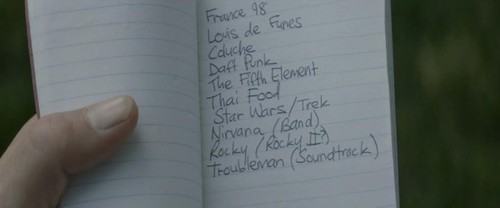 France 98
Louis de Funes
Coluche
Daft Punk
The Fifth Element
Thai Food
Star Wars/Trek
Nirvana (Band)
Rocky (Rocky II?)
Troubleman (Soundtrack)